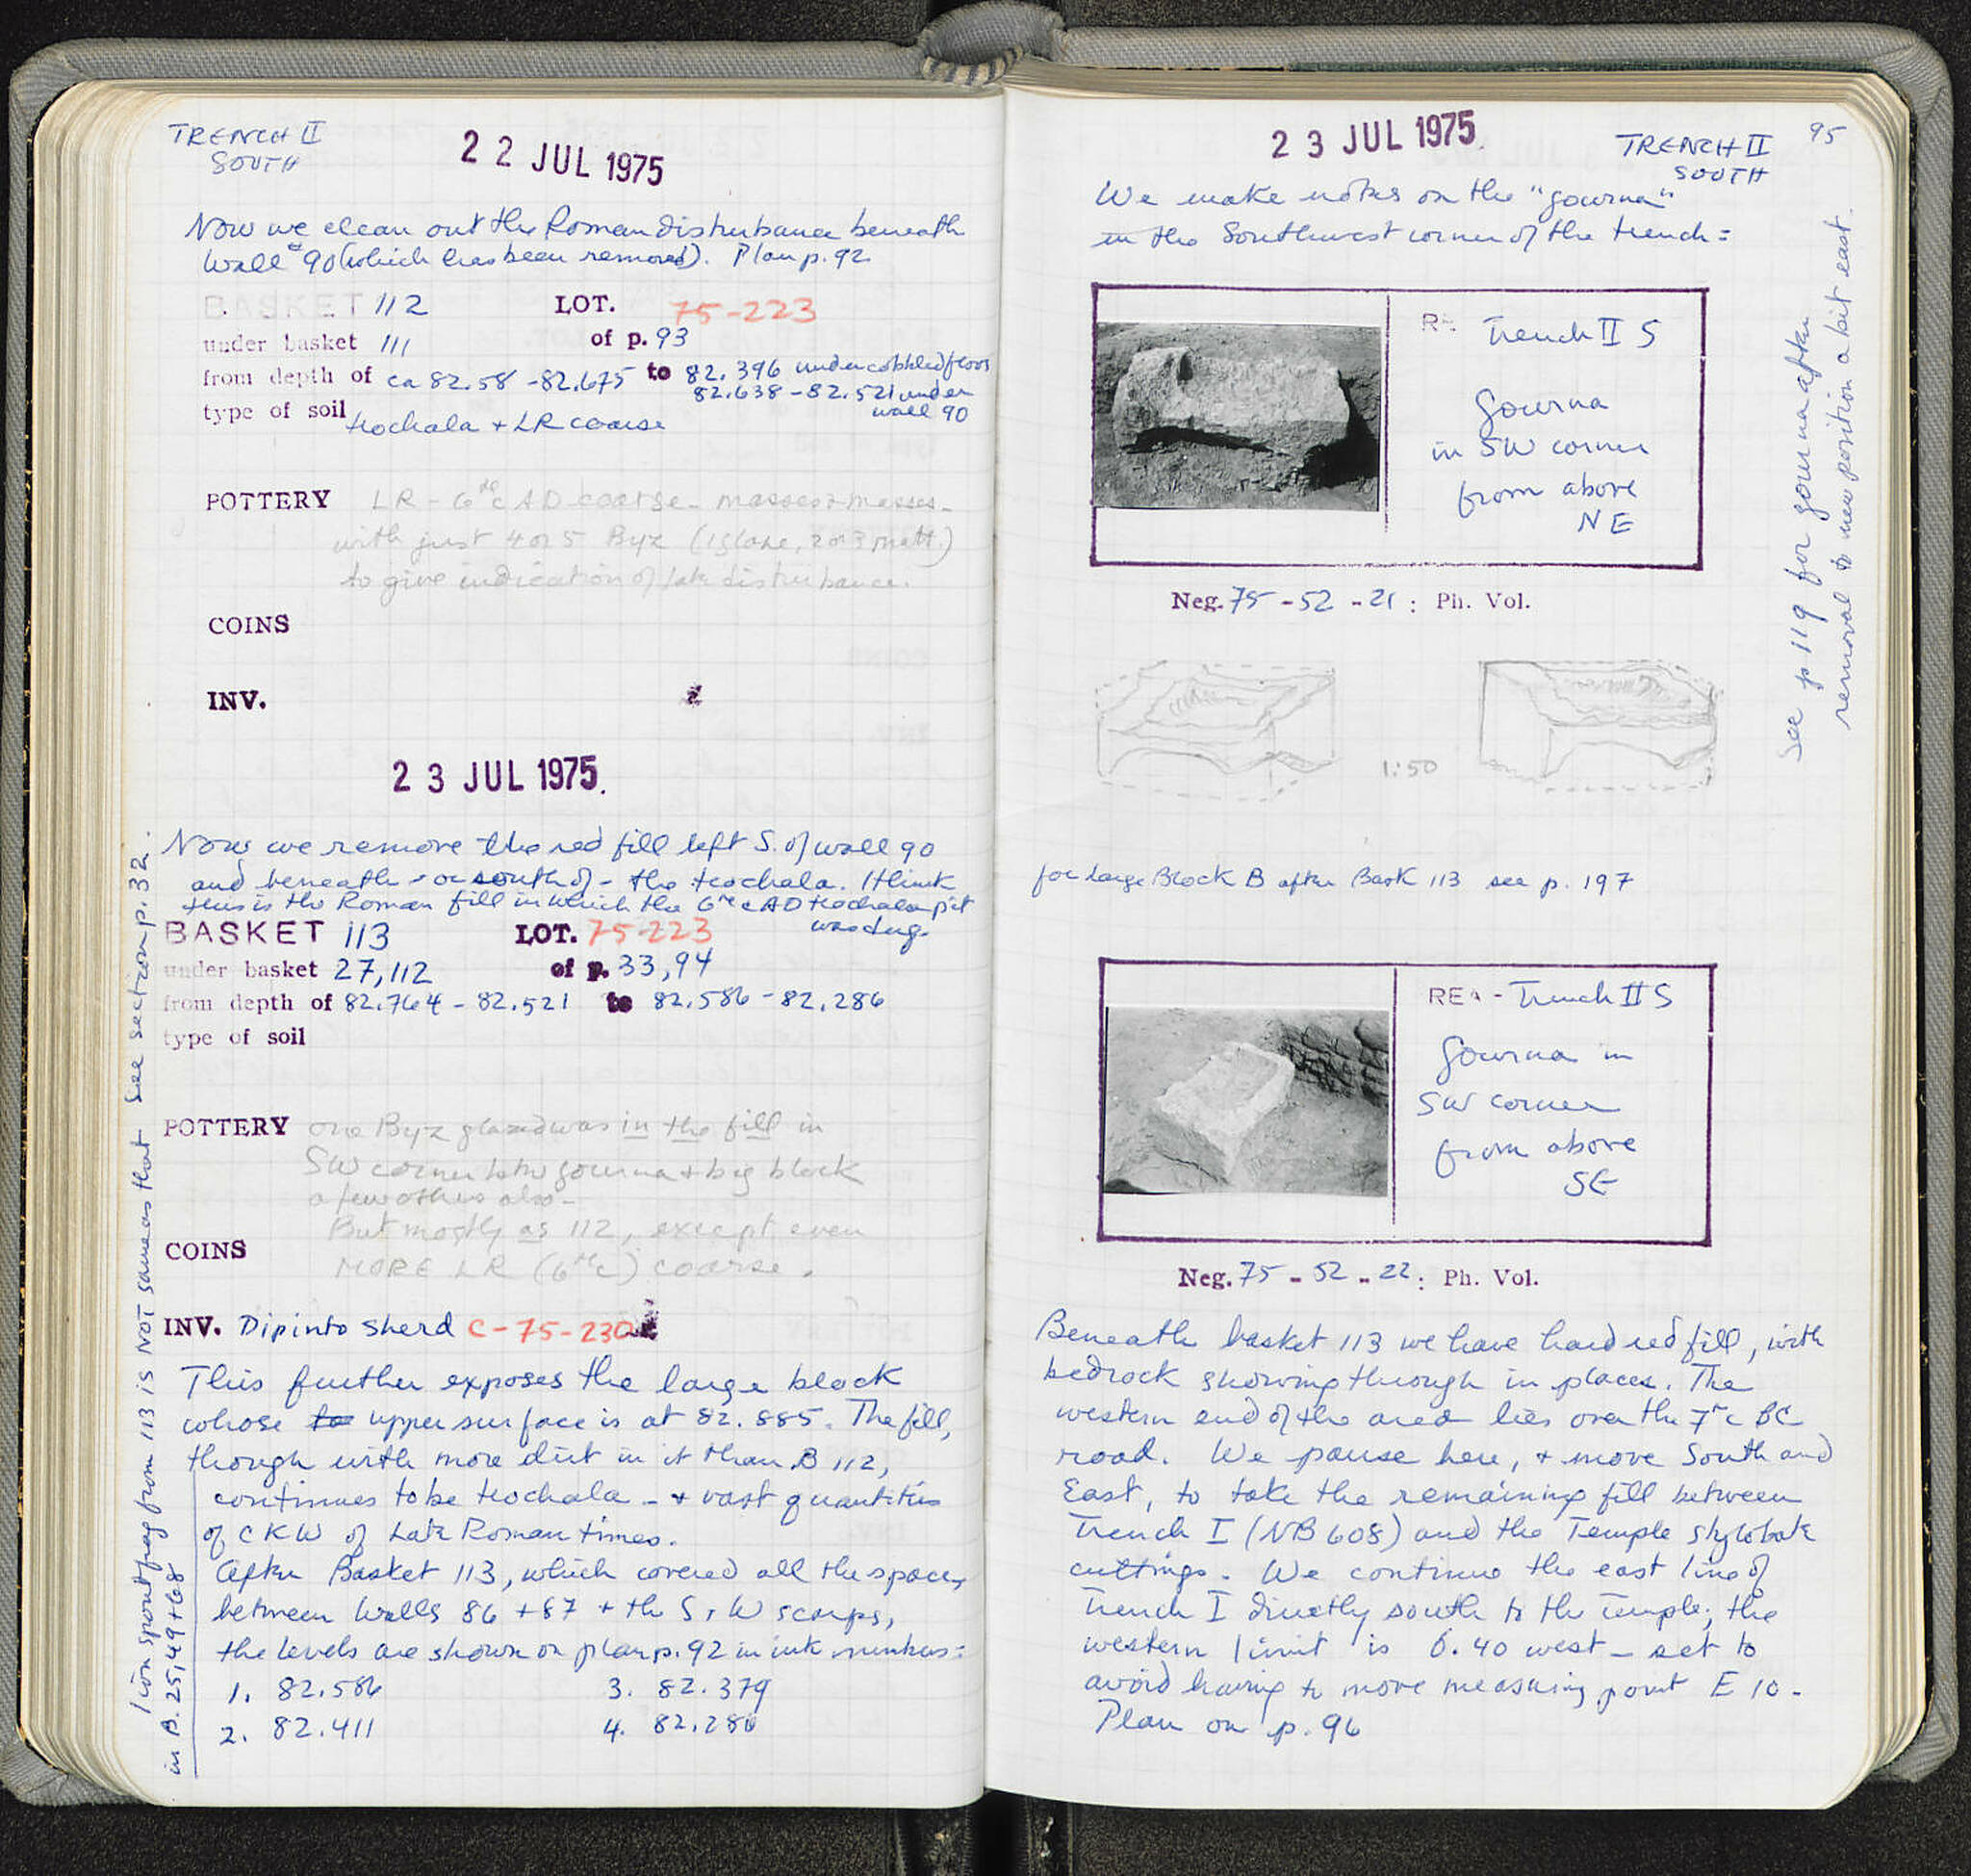 TRENCH II
SOUTH
22 JUL 1975
Now we clean out the Roman disturbance beneath
Wall #90 (which has been removed). Plan p. 92
BASKET 112 LOT. 75-223
under basket 111 of p. 93
from depth of ca 82.58 - 82.675 to 82.396 under cobbled floor
82.638 - 82.521 under
wall 90
type of soil trochala + LR coarse
POTTERY LR - 6th c AD coarse - masses + masses -
with just 4 or 5 Byz (1 glaze, 2 or 3 matt.)
to give indication of late disturbance.
COINS
INV.
23 JUL 1975.
Now we remove the red fill left S. of wall 90
and beneath - or south of - the trochala. I think
this is the Roman fill in which the 6th c AD trochala pit
was dug.
BASKET 113 LOT. 75-223
under basket 27, 112 of p. 33, 94
from depth of 82.764 - 82.521 to 82.586 - 82.286
type of soil
POTTERY one Byz glazed was in the fill in
SW corner btw gourna + big block
a few others also -
But mostly as 112, except even
MORE LR (6th c) coarse.
COINS
INV. Dipinto sherd C-75-230
This further exposes the large block
whose to upper surface is at 82.885. The fill,
though with more dirt in it than B 112,
continues to be trochala - + vast quantities
of CKW of Late Roman times.
After Basket 113, which covered all the space
between Walls 86 + 87 + the S, W scarps,
the levels are shown on plan p. 92 in ink numbers:
1. 82.586 3. 82.379
2. 82.411 4. 82.286
1 lion spout frag from 113 is NOT same as that
in B. 25, 49 + 68
See section p. 32.
23 JUL 1975.
TRENCH II
SOUTH
95
We make notes on the "gourna"
in the Southwest corner of the trench:
Trench II S
Gourna
in SW corner
from above
NE
Neg. 75-52-21: Ph. Vol.
See p 119 for gourna after
removal to new position a bit east.
1:50
for large Block B after Bask 113 see p. 197
Trench II S
Gourna in
SW corner
from above
SE
Neg. 75-52-22: Ph. Vol.
Beneath basket 113 we have hard red fill, with
bedrock showing through in places. The
western end of the area lies over the 7th c BC
road. We pause here, + move South and
East, to take the remaining fill between
Trench I (NB 608) and the Temple stylobate
cuttings. We continue the east line of
Trench I directly south to the Temple; the
western limit is 6.40 west - set to
avoid having to move measuring point E 10 -
Plan on p. 96